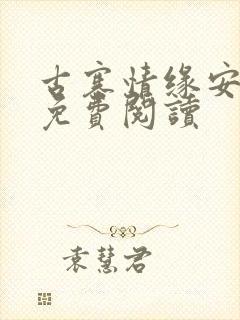 古寨情缘安
免費閱讀
袁慧君